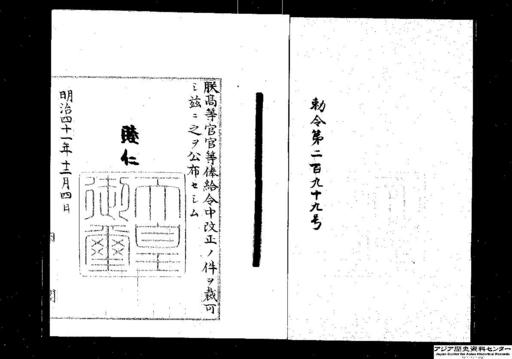 勅令第二百九十九号
朕高等官官等俸給令中改正ノ件ヲ裁可
シ茲ニ之ヲ公布セシム
睦仁
天皇
御璽
明治四十一年十二月四日
内閣
アジア歴史資料センター
Japan Center for Asian Historical Records